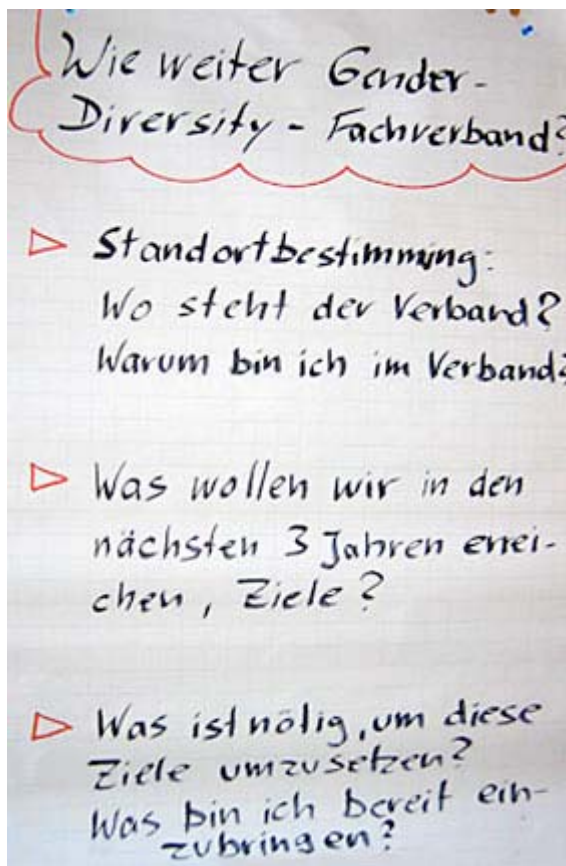 Wie weiter Gender-
Diversity - Fachverband?
Standortbestimmung:
Wo steht der Verband?
Warum bin ich im Verband?
Was wollen wir in den
nächsten 3 Jahren errei-
chen, Ziele?
Was ist nötig, um diese
Ziele umzusetzen?
Was bin ich bereit ein-
zubringen?